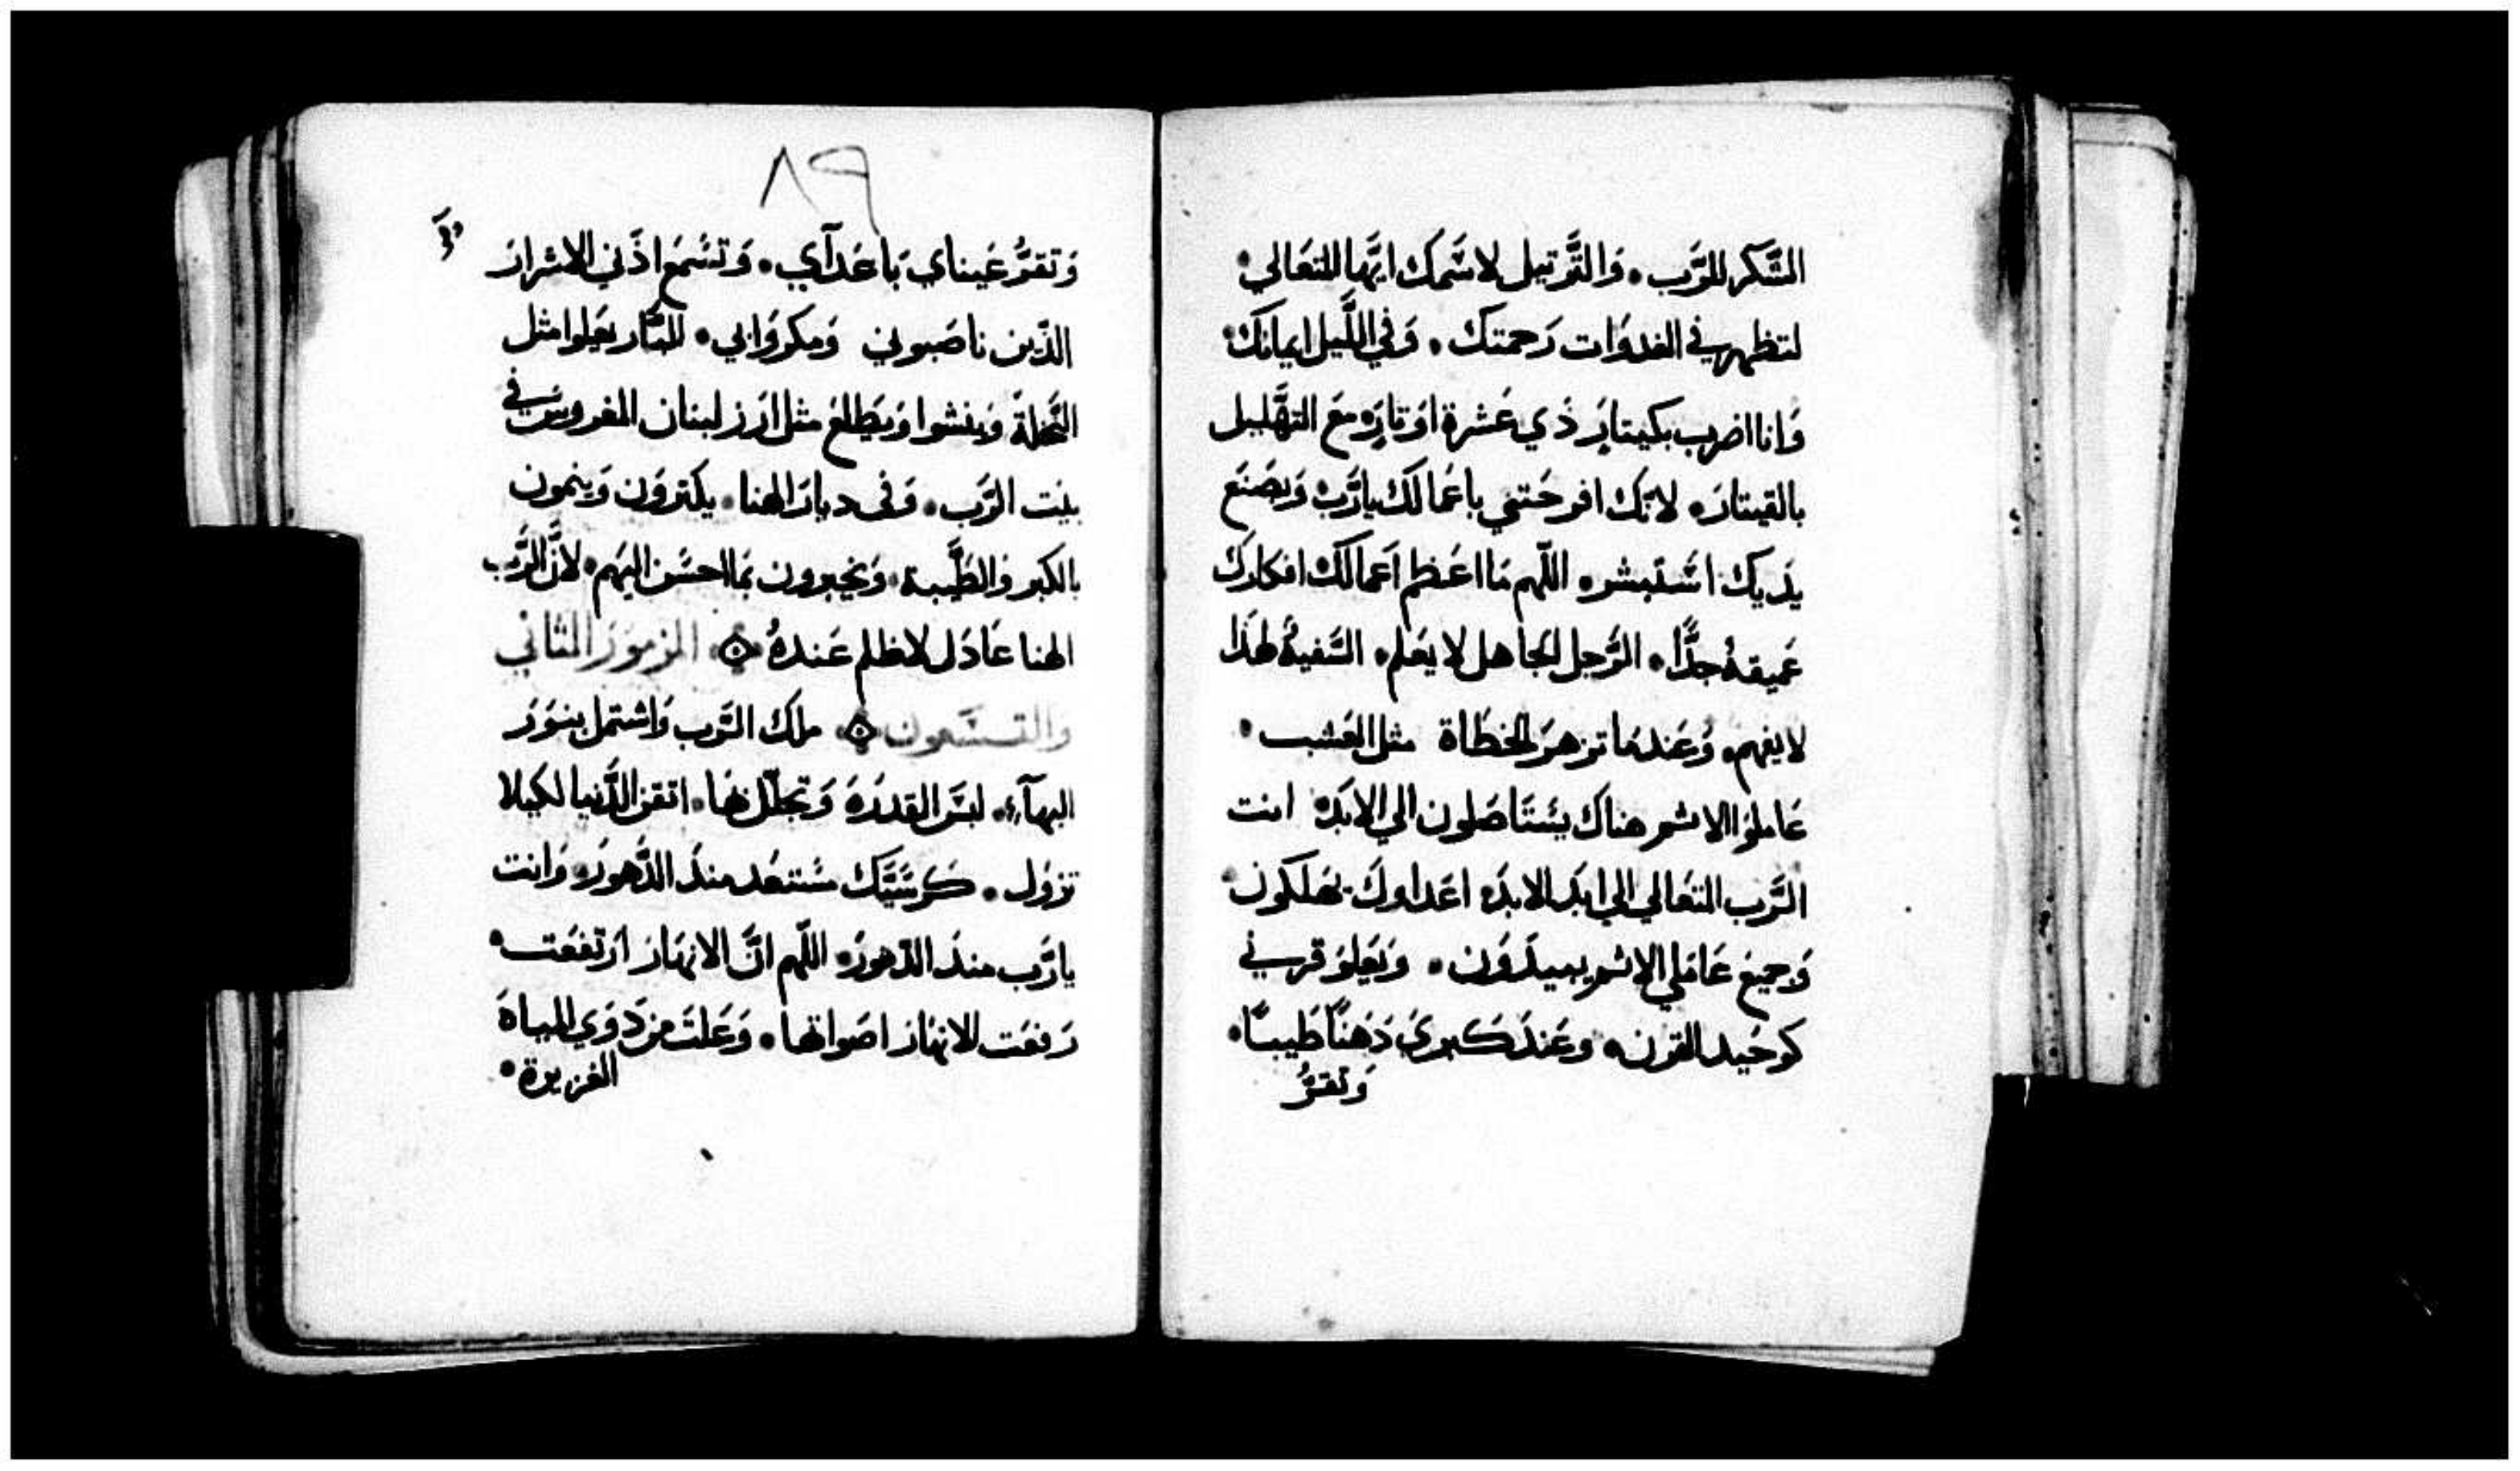 الشَّكر للرَّب. وَالتَّرتيل لاسَّمك ايَّها المتعَالي.
لتظهر في الغدوَات رَحمتك. وَفي اللَّيل ايمانك.
وَانا اضرب بكيتار ذي عَشرة اوتارِه معَ التهَّليل
بالقيتارَه لانَّك افرحَتني باعَمالَك يارَّب وَبصَنعَ
يدَيك استَبشره اللَّهم مَا اعَظم اَعمالَك افكارَك
عَميقهٌ جدًّا. الرَّجل الجاهل لا يعَلم. السَّفيهُ لهَذا
لا يفهم. وَعَندمَا تزهرَ الخطَاة مثل العَشب.
عَاملوَا الاثم هناك يسَتَاصَلون الي الابَد. انت
الرَّب المتعَالي الي ابَد الابدَ. اعَداوكَ يهَلكون.
وَجميعَ عَاملي الاثم يبيدَون. وَيعَلوَ قرني
كوحَيد القرن. وعَندَ كبري دَهنًا طَيبًا.
وَتقرُّ
٨٩
وَتقرُّ عَيناي بَاعَدآي. وَتسَمعَ اذَني الاشرارَ
الذَّين ناصَبوني وَمكروَا بي. البَّار يعَلوا مثل
النَّخلة وَينشوا وَيطَلعَ مثل ارَز لبنان المغروسَ في
بيَت الرَّب. وَفى ديارَ الهنا. يكثروَن وَينمون
بالكبر وَالطَّيبة. وَيخبرون بمَا احسَن اليَهم. لانَّ الرَّب
الهنا عَادَل لا ظلم عَندهُ المزموَر الثاني
والتسَّعون ملك الرَّب وَاشتمل بنوَر
البهآء. لبسَ القدرَهَ وَتجلّل بهَا. اتقن الدَّنيا لكيلا
تزوَل. كرسَيَّك مسَتعَد منذَ الدَّهورَ. وَانت
يا رَّب منذَ الدَّهورَ. اللَّهم انَّ الانهَارَ ارَتفعَت.
رَفعَت الانهَارَ اصَواتها. وَعَلتَ من دَوَي المياهَ
الغزيرة.